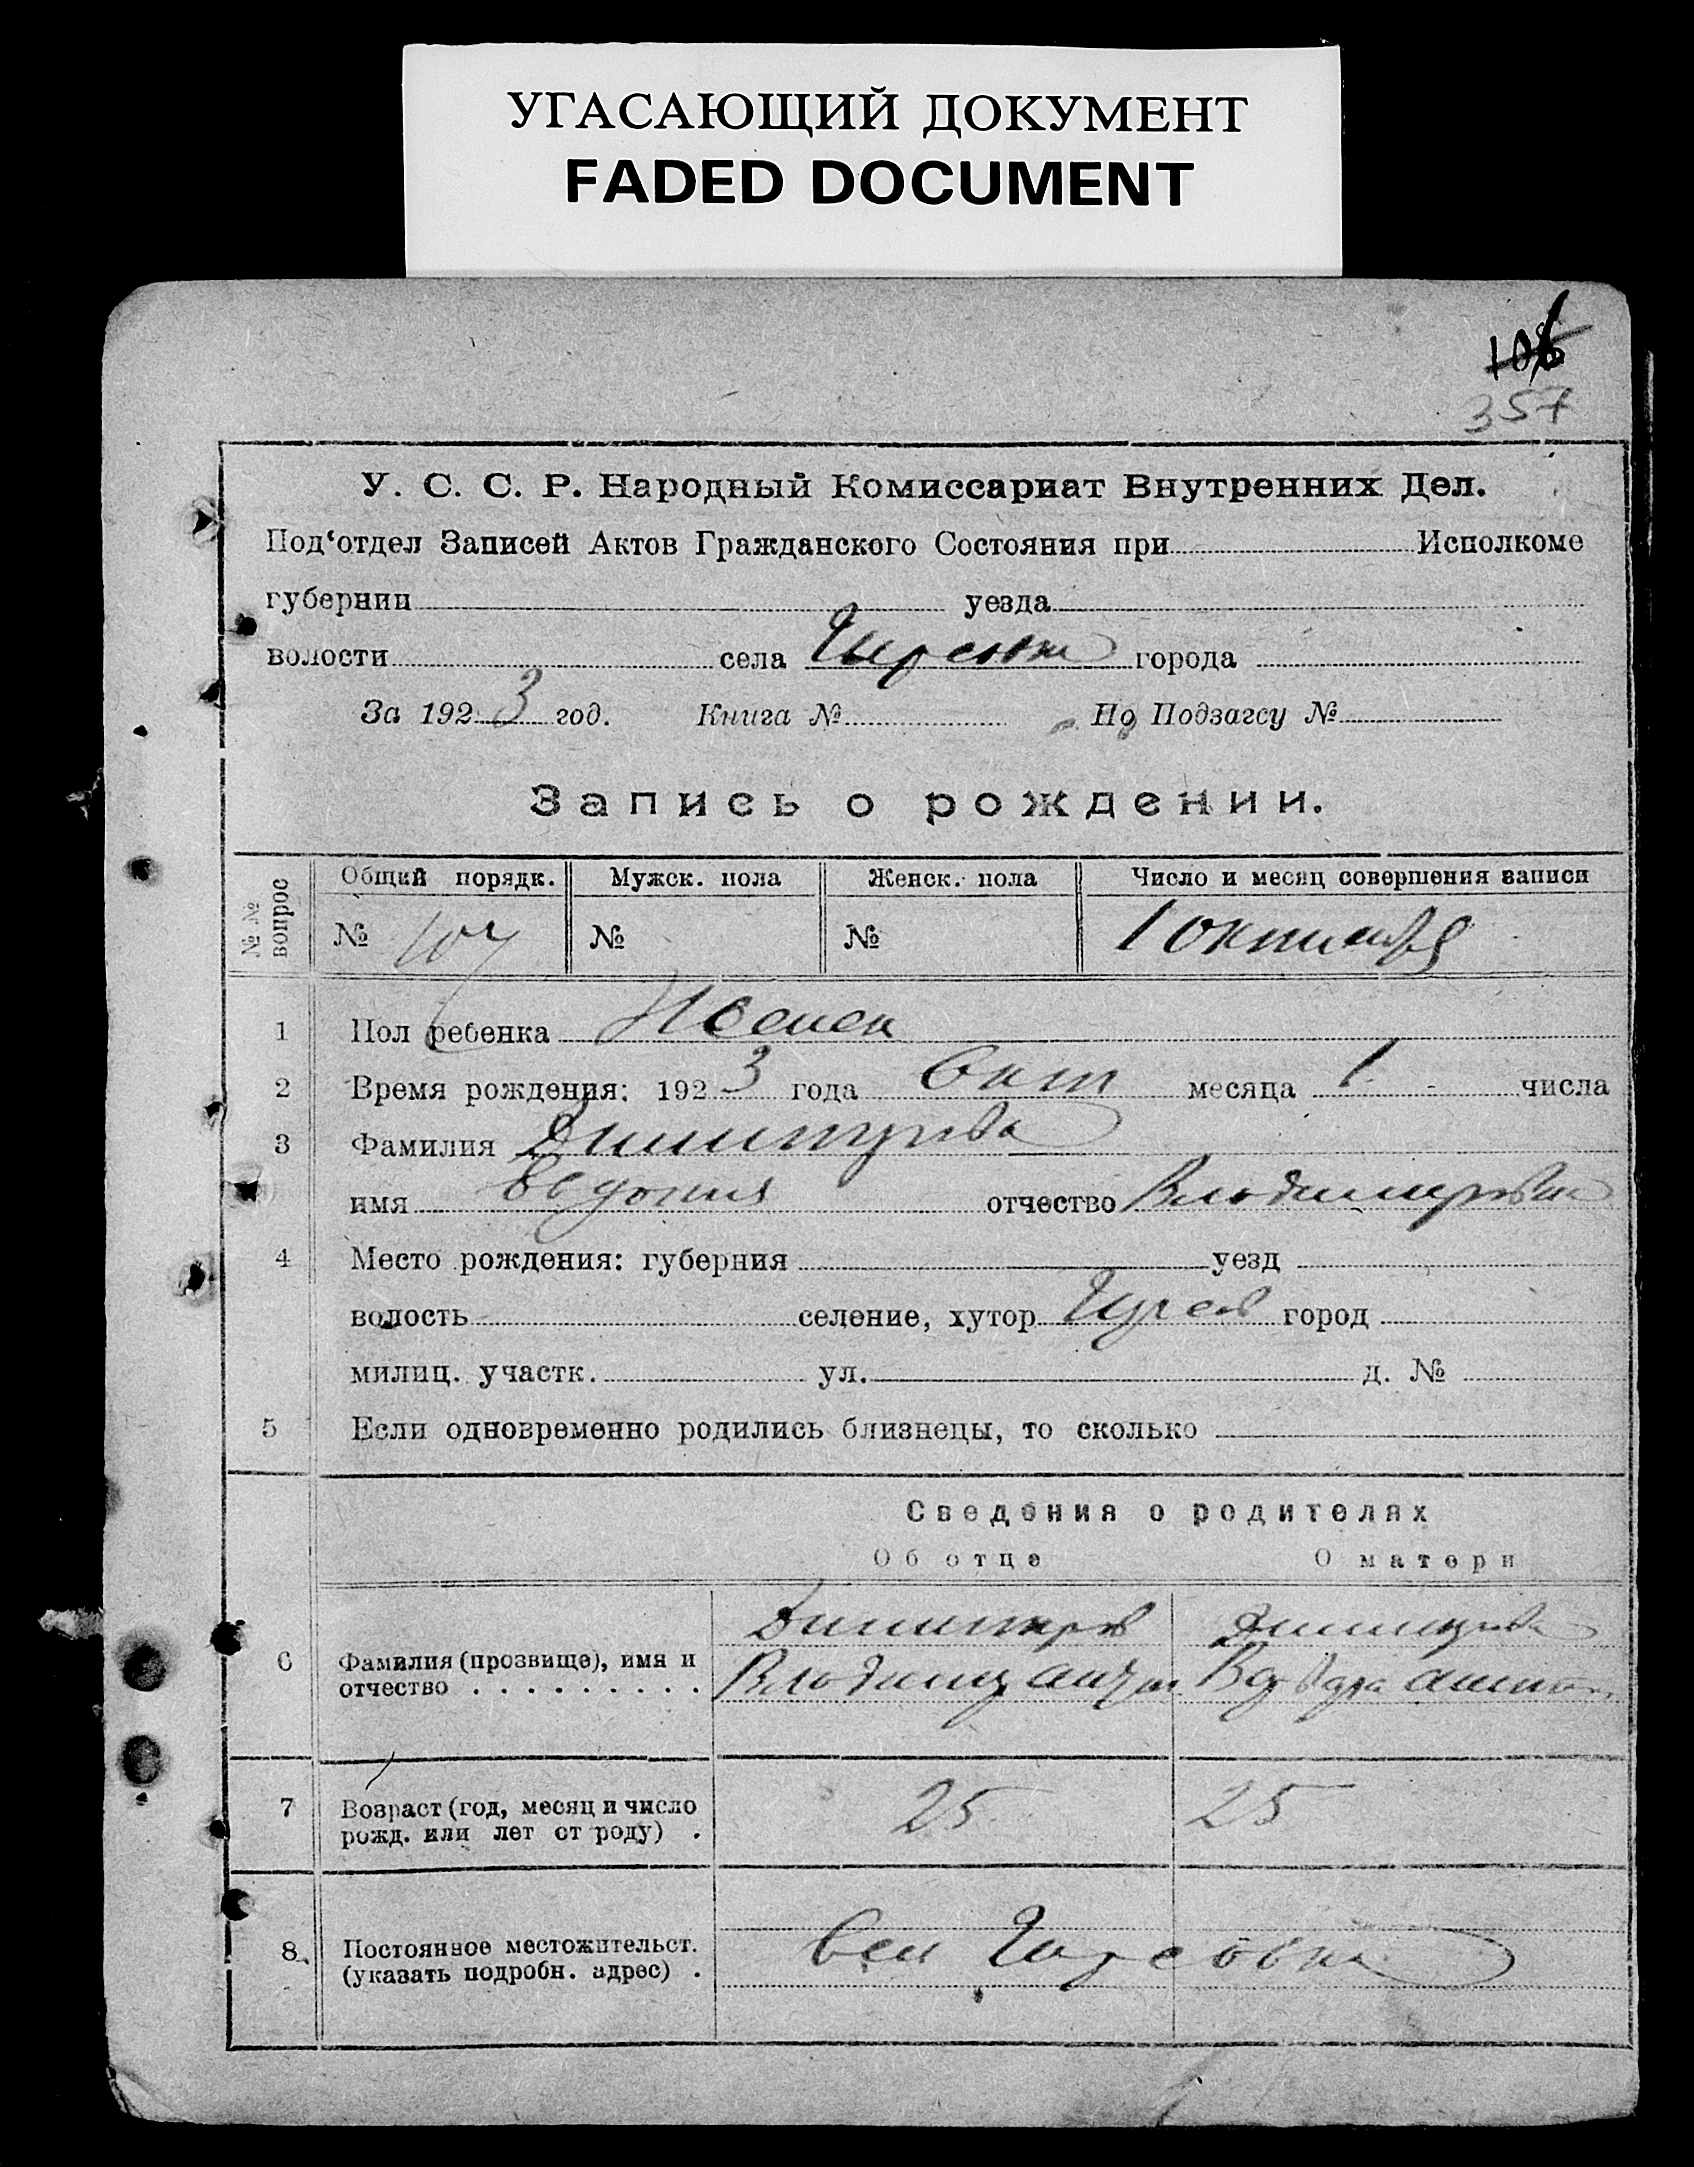 УГАСАЮЩИЙ ДОКУМЕНТ
FADED DOCUMENT
106
357
У. С. С. Р. Народный Комиссариат Внутренних Дел.
Под‘отдел Записей Актов Гражданского Состояния при Исполкоме
губернии уезда
волости села города
За 1923 год. Книга № По Подзагсу №
Запись о рождении.
№№ вопрос Общий порядк. Мужск. пола Женск. пола Число и месяц совершения записи
№ 107 № № 1 октября
1 Пол ребенка Женск
2 Время рождения: 1923 года Окт месяца 1 числа
3 Фамилия Димитрова
имя Евдокия отчество Владимировна
4 Место рождения: губерния уезд
волость селение, хутор город
милиц. участк. ул. д. №
5 Если одновременно родились близнецы, то сколько
Сведения о родителях
Об отце О матери
Димитров Димитрова
6 Фамилия (прозвище), имя и
отчество . . . . . . . . .
7 Возраст (год, месяц и число
рожд. или лет от роду) . 25 25
8. Постоянное местожительст.
(указать подробн. адрес) . Сел